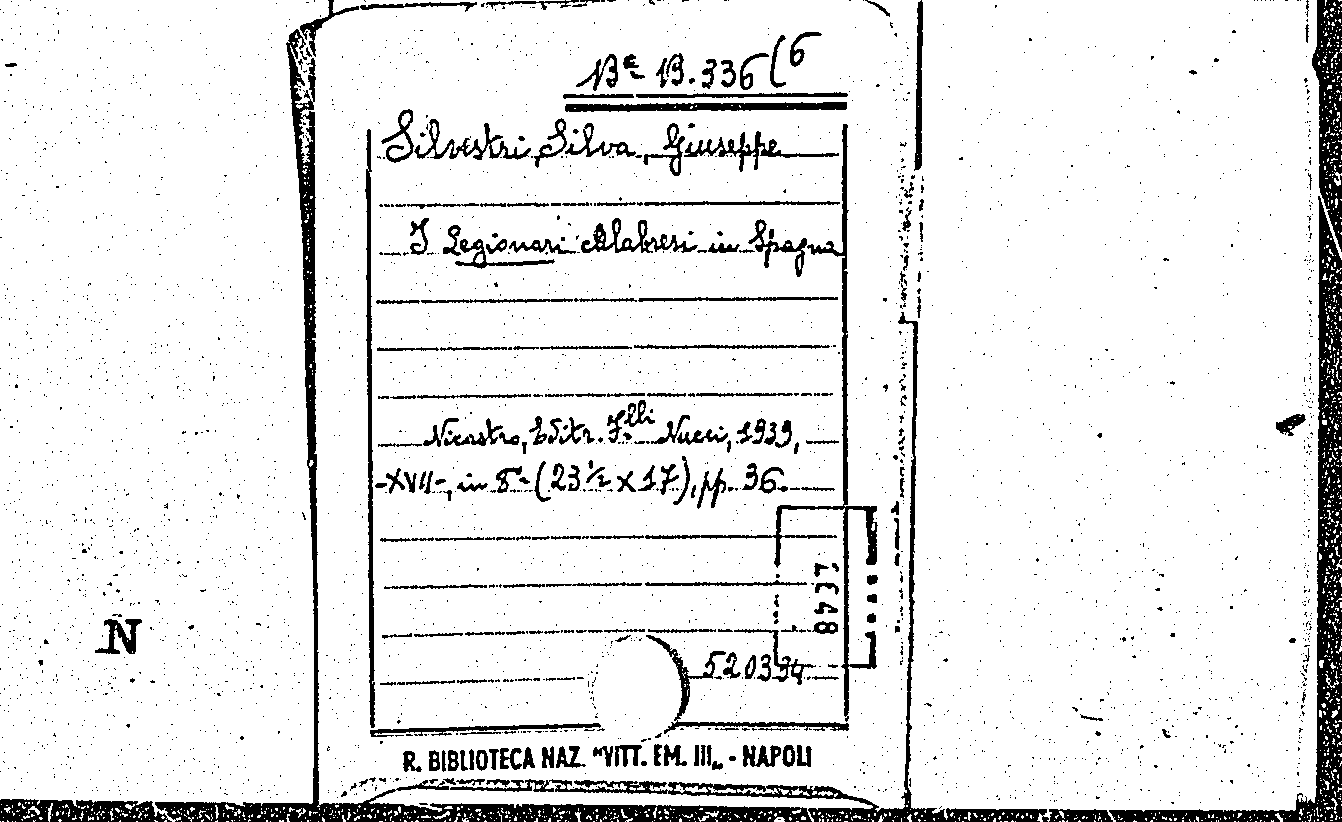 Bᵉ B.336(6
Silvestri Silva, Giuseppe
I Legionari Calabresi in Spagna
Nicastro, Editr. F.lli Nucci, 1939,
-XVII-, in 8°-(23½ x 17), pp. 36.
520394
N
R. BIBLIOTECA NAZ. "VITT. EM. III„ - NAPOLI